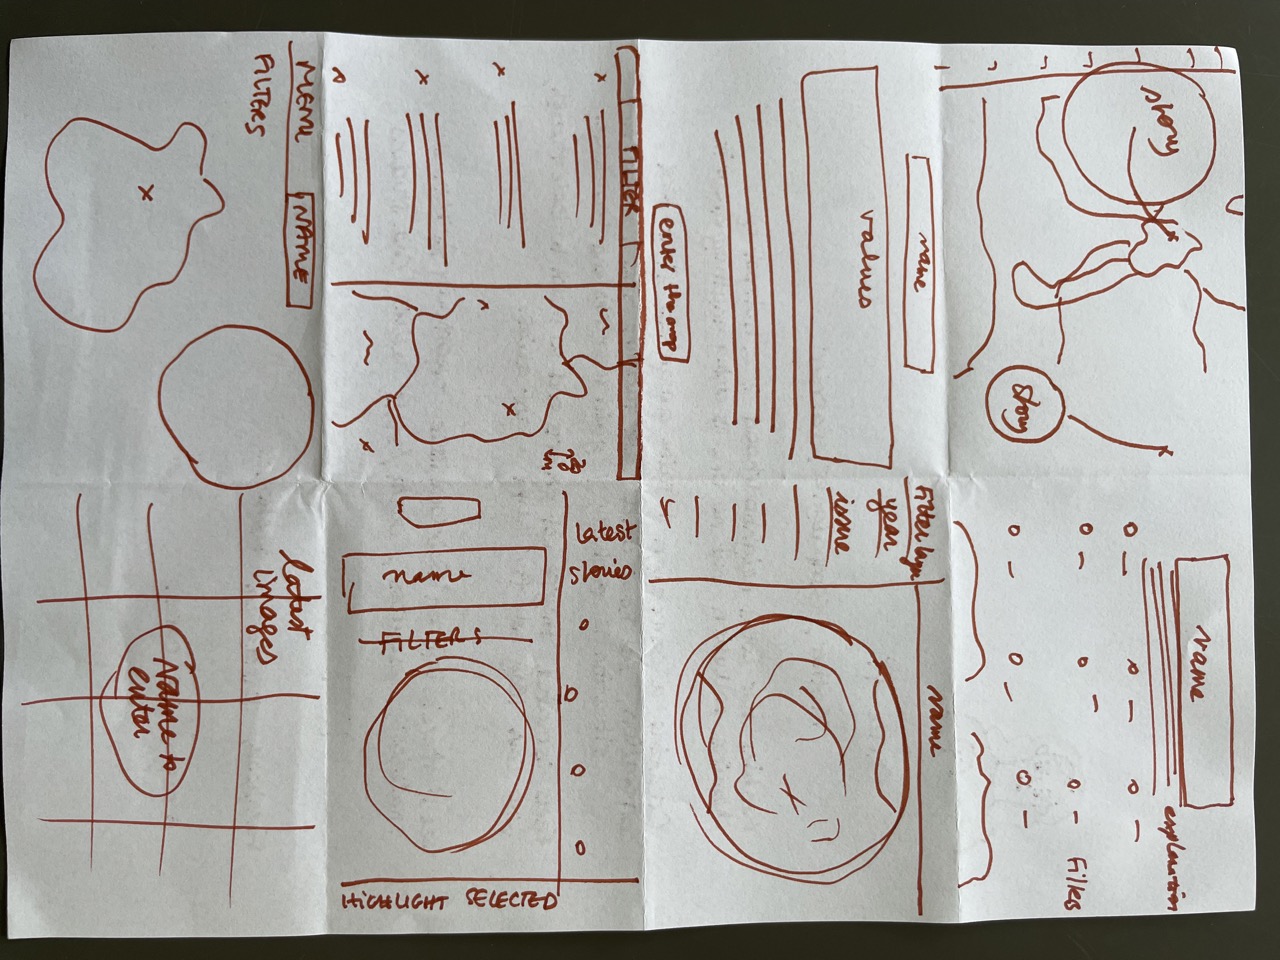 story
story
name
explanation
Filters
name
values
enter the map
Filter layer
name
year
issue
FILTER
latest
stories
name
FILTERS
HIGHLIGHT SELECTED
MENU
NAME
FILTERS
latest
images
Name to
enter